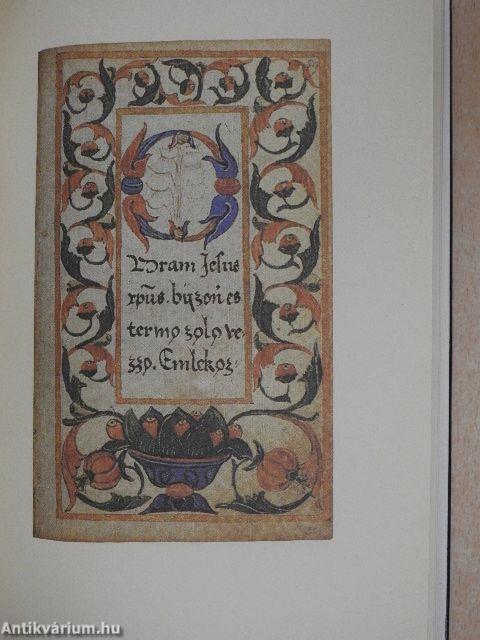 O
Vram Jesus
xpūs. byzoń es
termo zolo ve-
zzo. Emlekoz-
Antikvárium.hu